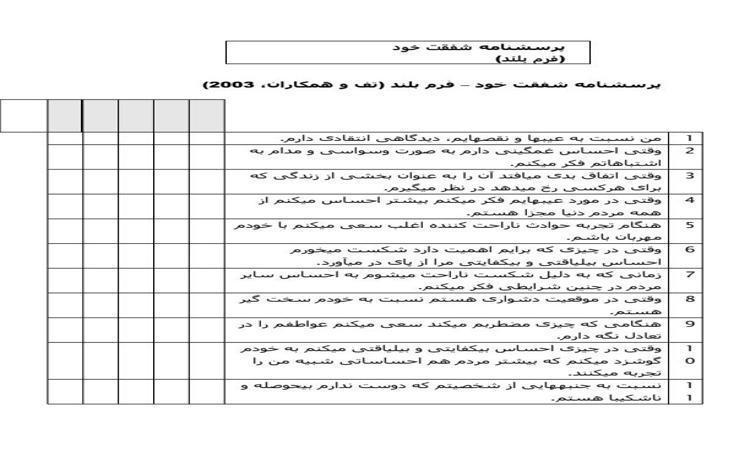 پرسشنامه شفقت خود
(فرم بلند)
پرسشنامه شفقت خود – فرم بلند (نف و همکاران، 2003)
1 من نسبت به عیبها و نقصهایم، دیدگاهی انتقادی دارم.
2 وقتی احساس غمگینی دارم به صورت وسواسی و مدام به
اشتباهاتم فکر میکنم.
3 وقتی اتفاق بدی میافتد آن را به عنوان بخشی از زندگی که
برای هرکسی رخ میدهد در نظر میگیرم.
4 وقتی در مورد عیبهایم فکر میکنم بیشتر احساس میکنم از
همه مردم دنیا مجزا هستم.
5 هنگام تجربه حوادث ناراحت کننده اغلب سعی میکنم با خودم
مهربان باشم.
6 وقتی در چیزی که برایم اهمیت دارد شکست میخورم
احساس بیلیاقتی و بیکفایتی مرا از پای در میآورد.
7 زمانی که به دلیل شکست ناراحت میشوم به احساس سایر
مردم در چنین شرایطی فکر میکنم.
8 وقتی در موقعیت دشواری هستم نسبت به خودم سخت گیر
هستم.
9 هنگامی که چیزی مضطربم میکند سعی میکنم عواطفم را در
تعادل نگه دارم.
1 وقتی در چیزی احساس بیکفایتی و بیلیاقتی میکنم به خودم
0 گوشزد میکنم که بیشتر مردم هم احساساتی شبیه من را
تجربه میکنند.
1 نسبت به جنبههایی از شخصیتم که دوست ندارم بیحوصله و
1 ناشکیبا هستم.